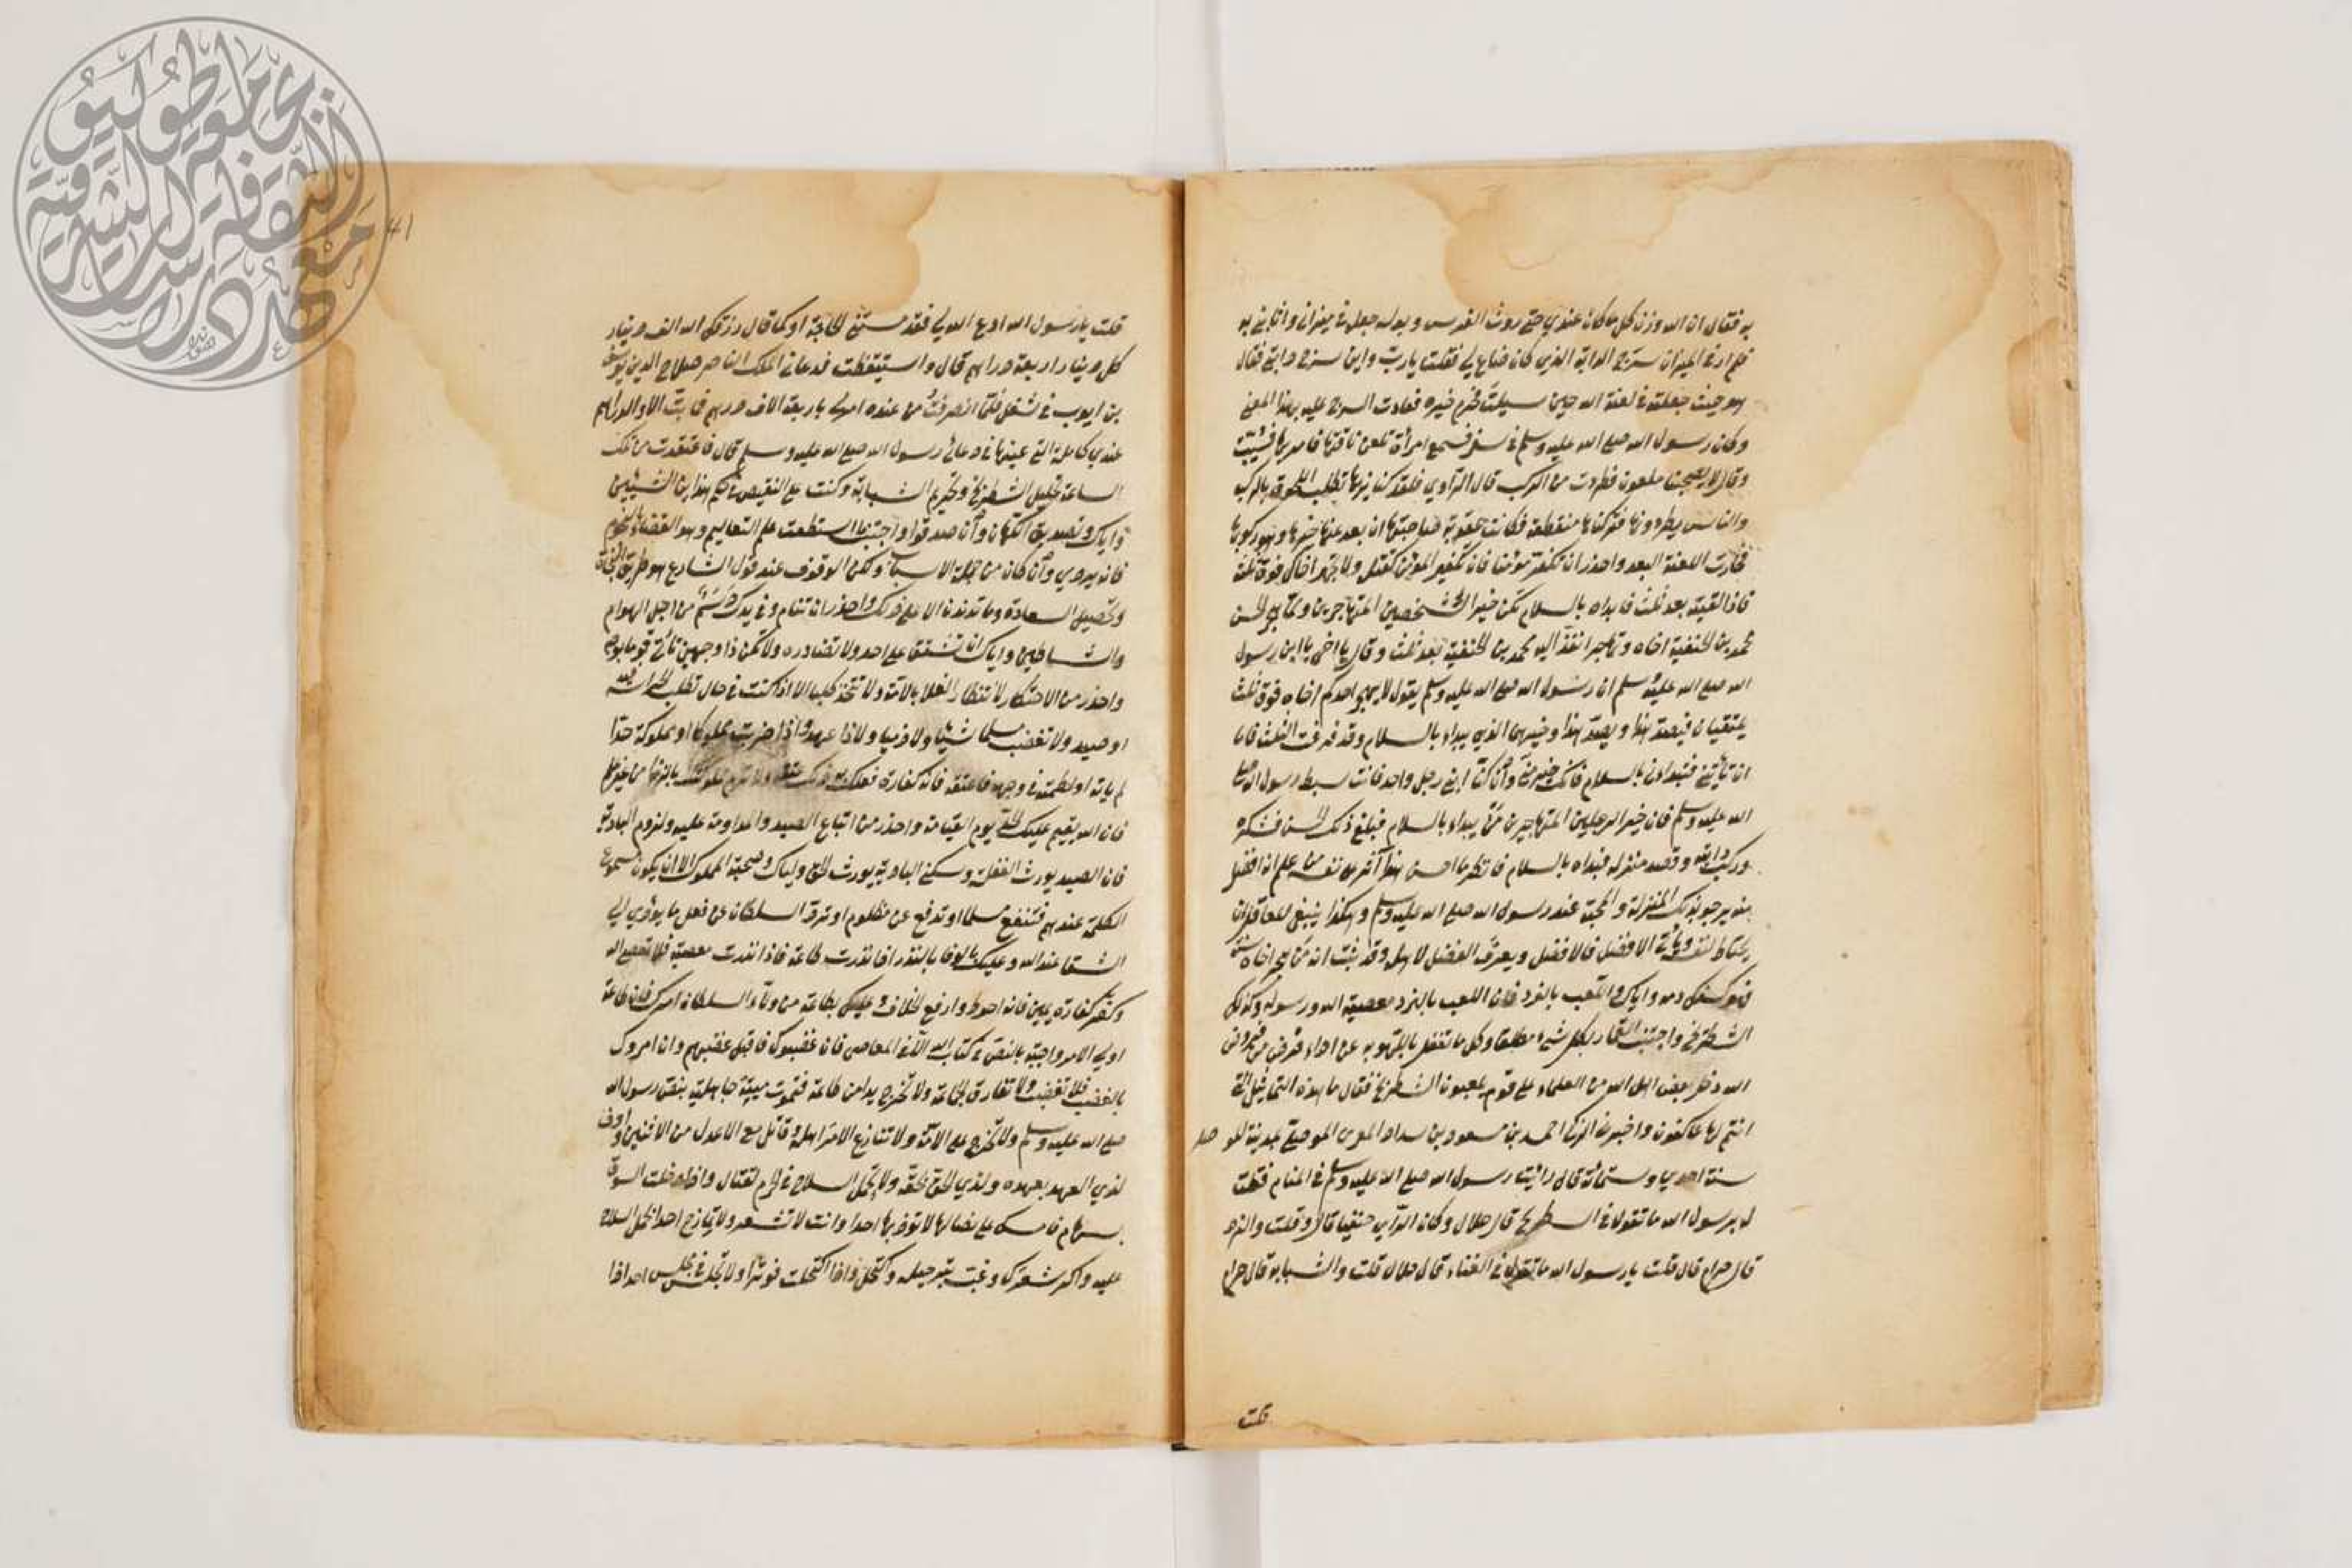 به فقال ان الله وزن كل ما كان عندي حتى روث الفرس وبوله جعله في ميزاني واثابني به
فلم ار في الميزان سرج الدابة الذي كان ضاع لي فقلت يا رب واين سرج دابتي فقال
هو حيث جعلته في لعنة الله حين سيلت فحرم خيره فعادت السرج عليه بهذا المعنى
وكان رسول الله صلى الله عليه وسلم في سفر فسمع امرأة تلعن ناقتها فامر بها فسيبت
وقال لا يصحبنا ملعون فطردت من الركب قال الراوي فلقد كنا نريها تطلب اللحوق بالركب
والناس يطردونها فتركناها منقطعة فكانت عقوبة صاحبتها ان بعد عنها خيرها وهو ركوبها
فحارت اللعنة البعد واحذر ان تكفر مؤمنا فان تكفير المؤمن كقتله ولا تهجر اخاك فوق ثلث
فاذا لقيته بعد ثلث فابداه بالسلام تكن خير الشخصين المتهاجرين وتهاجر الحسن
محمد بن الحنفية اخاه وتهاجرا نفذ اليه محمد بن الحنفية بعد ثلث وقال يا اخي يا ابن رسول
الله صلى الله عليه وسلم ان رسول الله صلى الله عليه وسلم يقول لا يهجر احدكم اخاه فوق ثلث
يلتقيان فيصد هذا ويصد هذا وخيرهما الذي يبداء بالسلام وقد فرغت الثلث فاما
ان تأتيني فتبداءني بالسلام فانك خير مني وان كنا ابني رجل واحد فانت سبط رسول الله صلى
الله عليه وسلم فان خير الرجلين المتهاجرين من يبداء بالسلام فبلغ ذلك الحسن فشكره
وركب دابته وقصد منزله فبداه بالسلام فانظر ما احسن هذا آثره على نفسه من علم انه افضل
منه يرجو بذلك المنزلة والمحبة عند رسول الله صلى الله عليه وسلم وهكذا ينبغي للعاقل ان
يحتاط لنفسه ويأتي الافضل فالافضل ويعرف الفضل لاهله وقد ثبت انه من هجر اخاه سنة
فهو كسفك دمه واياك واللعب بالنرد فان اللعب بالنرد معصية الله ورسوله وكذلك
الشطرنج واجتنب القمار بكل شيء مطلقا وكل ما تغفل بالتلهي به عن اداء فرض من فروض
الله دخل بعض اهل الله من العلماء على قوم يلعبون الشطرنج فقال ما هذه التماثيل التي
انتم لها عاكفون واخبرني الزكي احمد بن مسعود بن سداد المقرى الموصلي بمدينة الموصل
سنة احدي وستمائة قال رائيت رسول الله صلى الله عليه وسلم في المنام فقلت
له يرسول الله ما تقول في السطرنج قال حلال وكان الرائي حنفيا قال وقلت والنرد
قال حرام قال قلت يا رسول الله ما تقول في الغناء قال حلال قلت والشبابه قال حرام
قلت
41
قلت يا رسول الله ادع الله لي فقد مستني الحاجة او كما قال رزقك الله الف دينار
كل دينار اربعة دراهم قال واستيقظت فدعاني الملك الناصر صلاح الدين يوسف
بن ايوب في شغل فلما انصرفت من عنده امر لي باربعة الاف درهم فما بت الا والدراهم
عندي كاملة التي عينها في دعائه رسول الله صلى الله عليه وسلم قال فاعتقدت من تلك
الساعة تحليل الشطرنج وتحريم الشبابة وكنت على النقيض في حكم هذين الشيئين
واياك وتصديق الكهان وان صدقوا واجتنب ما استطعت علم التعاليم وهو القضاء بالنجوم
فانه يردي وان كان من جملة الاسباب ولكن الوقوف عند قول الشارع هو طريق النجاة
وتحصيل السعادة وما تدندن الا على ذلك واحذر ان تنام وفي يدك دسم من اجل الهوام
والشياطين واياك ان تشقق على احد ولا تضادره ولا تكن ذا وجهين تأتي قوما بوجه
واحذر من الاحتكار لانتظار الغلا بالامة ولا تتخذ كلبا الا اذا كنت في حال تطلب الحراسة
او صيد ولا تغضب مسلما شيئا ولا ذميا ولا ذا عهد واذا ضربت مملوكا او مملوكة حدا
لم ياته او لطمته في وجهه فاعتقه فانه كفارة فعلك به ذلك عنه ولا ترم مملوكك بالزنا من غير علم
فان الله يقيم عليك الحد يوم القيامة واحذر من اتباع الصيد والمداومة عليه ولزوم البادية
فان الصيد يورث الغفلة وسكنى البادية يورث الجفا واياك وصحبة الملوك الا ان يكون مسموع
الكلمة عندهم فتنفع مسلما او تدفع عن مظلوم او ترد السلطان عن فعل ما يؤدي الى
الشقا عند الله وعليك بالوفا بالنذر اذا نذرت طاعة فاذا نذرت معصية فلا تعص الله
وكفر كفارة يمين فانه احوط وارفع للخلاف وعليك بطاعة من ولاه السلطان امرك فان طاعة
اولي الامر واجبة بالنص في كتاب الله
بالغضب فلا تغضب ولا تفارق الجماعة ولا تخرج يدا من طاعة فتموت ميتة جاهلية بنص رسول الله
صلى الله عليه وسلم ولا تخرج على الامة ولا تنازع الامر اهله وقاتل مع الاعدل من الاثنين واوف
لذي العهد بعهده ولذي الحق بحقه ولا تحمل السلاح في الحرم لقتال واذا دخلت السوق
بسهام فامسك على نصالها لا توذ بها احدا وانت لا تشعر ولا تمازح احدا بحمل السلاح
عليه واكرم شعرك وغب بترجيله واكتحل واذا اكتحلت فوترا ولا تجلس في مجلس احد اذا